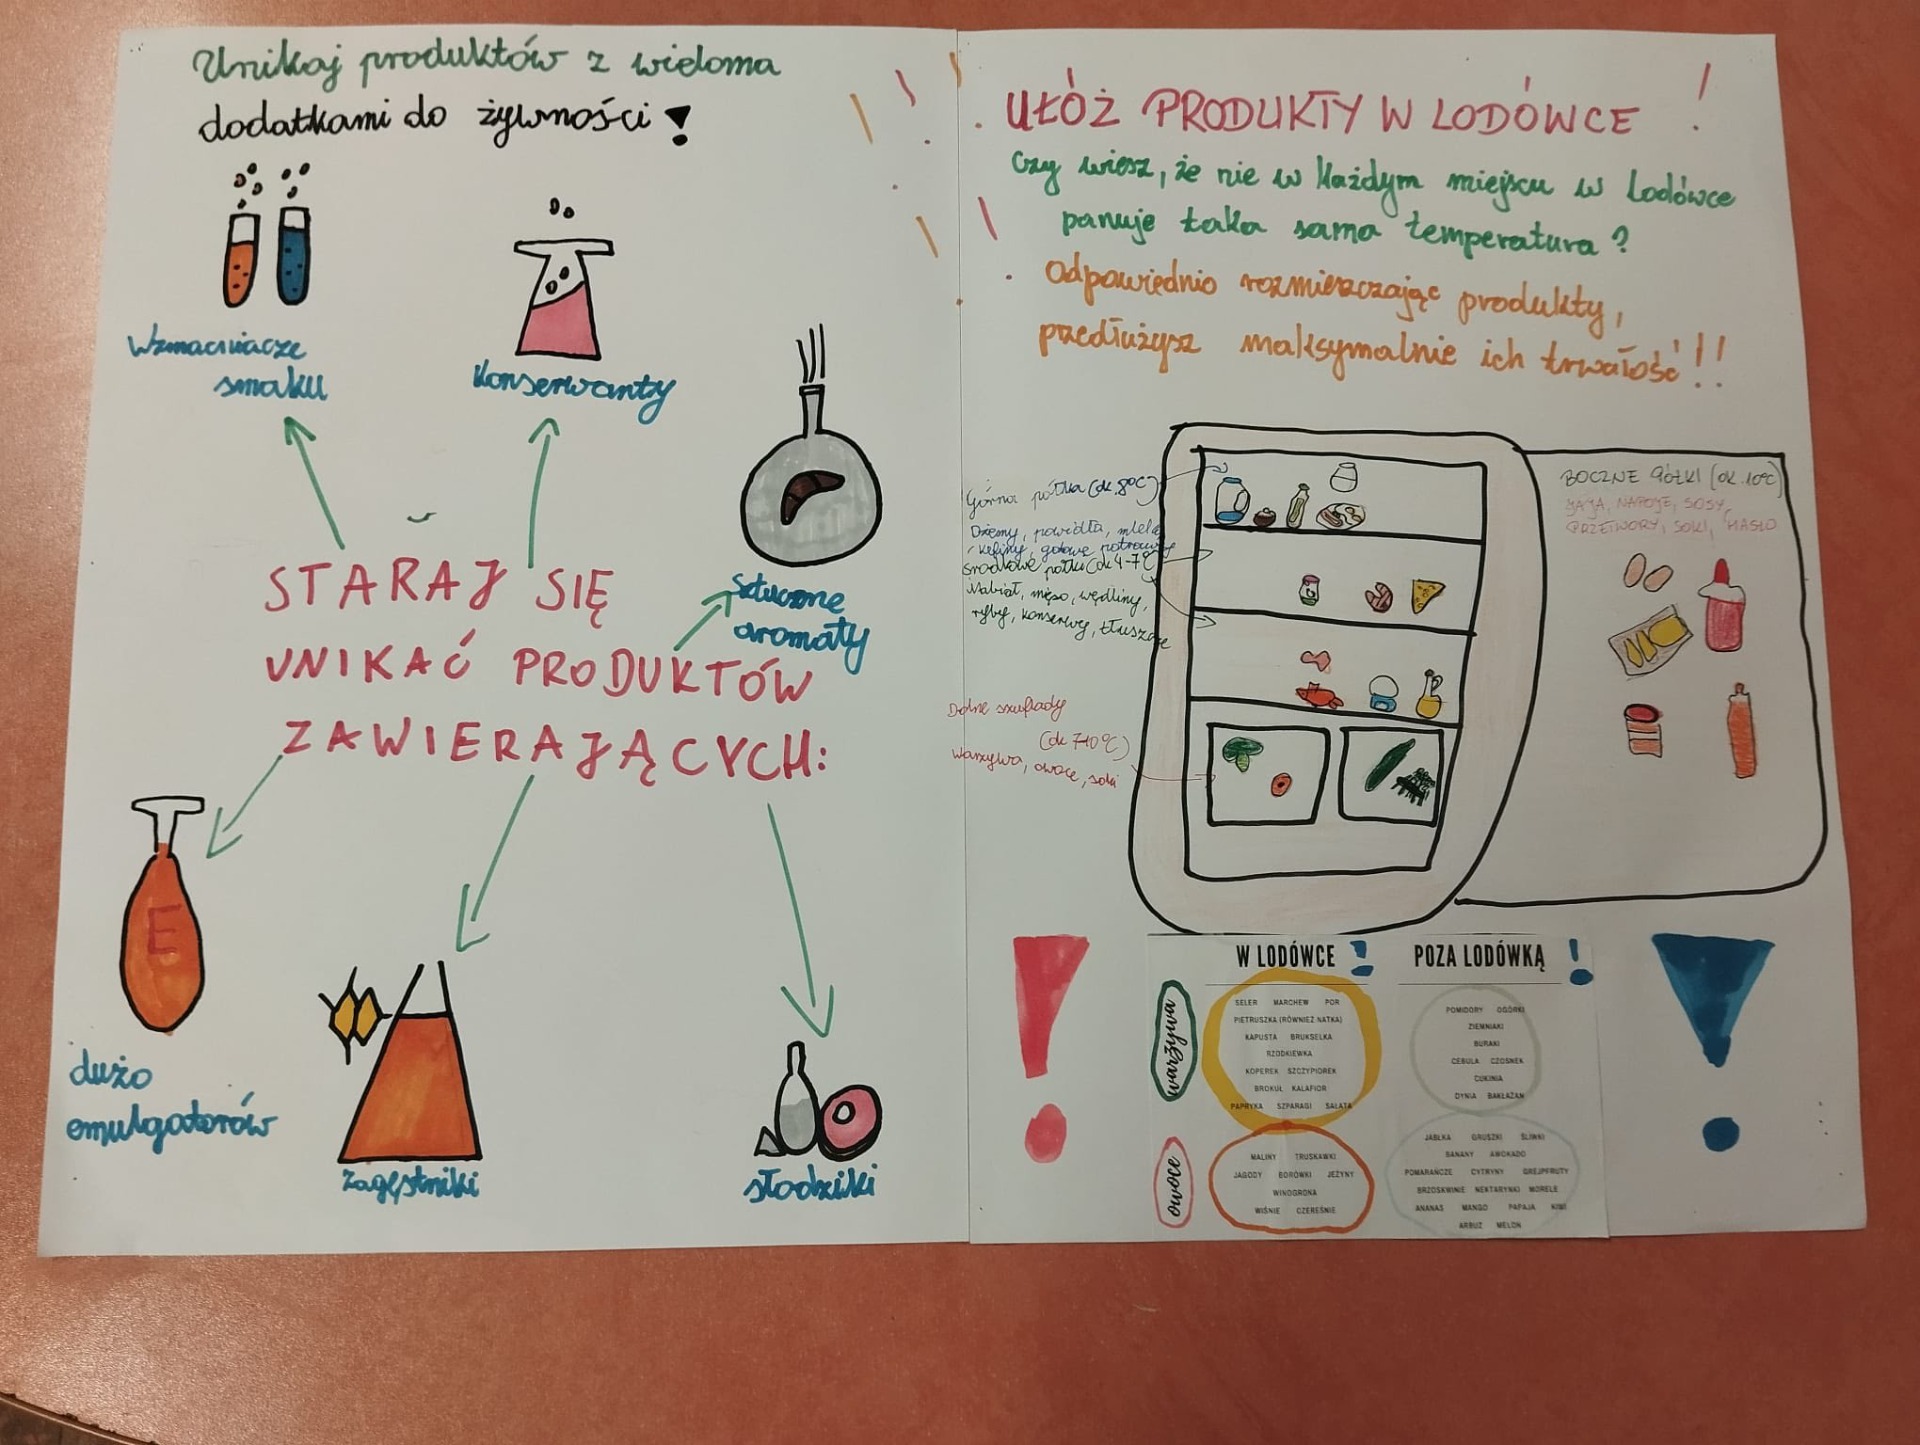 Unikaj produktów z wieloma
dodatkami do żywności!
Wzmacniacze
smaku
Konserwanty
Sztuczne
aromaty
STARAJ SIĘ
UNIKAĆ PRODUKTÓW
ZAWIERAJĄCYCH:
E
dużo
emulgatorów
Zagęstniki
słodziki
UŁÓŻ PRODUKTY W LODÓWCE !
Czy wiesz, że nie w każdym miejscu w lodówce
panuje taka sama temperatura?
Odpowiednio rozmieszczając produkty,
przedłużysz maksymalnie ich trwałość!!!
Górna półka (ok. 8°C)
Dżemy, powidła, mleko
, kefiry, gotowe potrawy
środkowe półki (ok 4-7°C
Nabiał, mięso, wędliny,
ryby, konserwy, tłuszcze
Dolne szuflady
(ok 7-10°C)
Warzywa, owoce, soki
BOCZNE PÓŁKI (OK. 10°C)
JAJA, NAPOJE, SOSY,
PRZETWORY, SOKI, MASŁO
W LODÓWCE !
POZA LODÓWKĄ !
warzywa
SELER MARCHEW POR
PIETRUSZKA (RÓWNIEŻ NATKA)
KAPUSTA BRUKSELKA
RZODKIEWKA
KOPEREK SZCZYPIOREK
BROKUŁ KALAFIOR
PAPRYKA SZPARAGI SAŁATA
POMIDORY OGÓRKI
ZIEMNIAKI
BURAKI
CEBULA CZOSNEK
CUKINIA
DYNIA BAKŁAŻAN
owoce
MALINY TRUSKAWKI
JAGODY BORÓWKI JEŻYNY
WINOGRONA
WIŚNIE CZEREŚNIE
JABŁKA GRUSZKI ŚLIWKI
BANANY AWOKADO
POMARAŃCZE CYTRYNY GREJPFRUTY
BRZOSKWINIE NEKTARYNKI MORELE
ANANAS MANGO PAPAJA KIWI
ARBUZ MELON